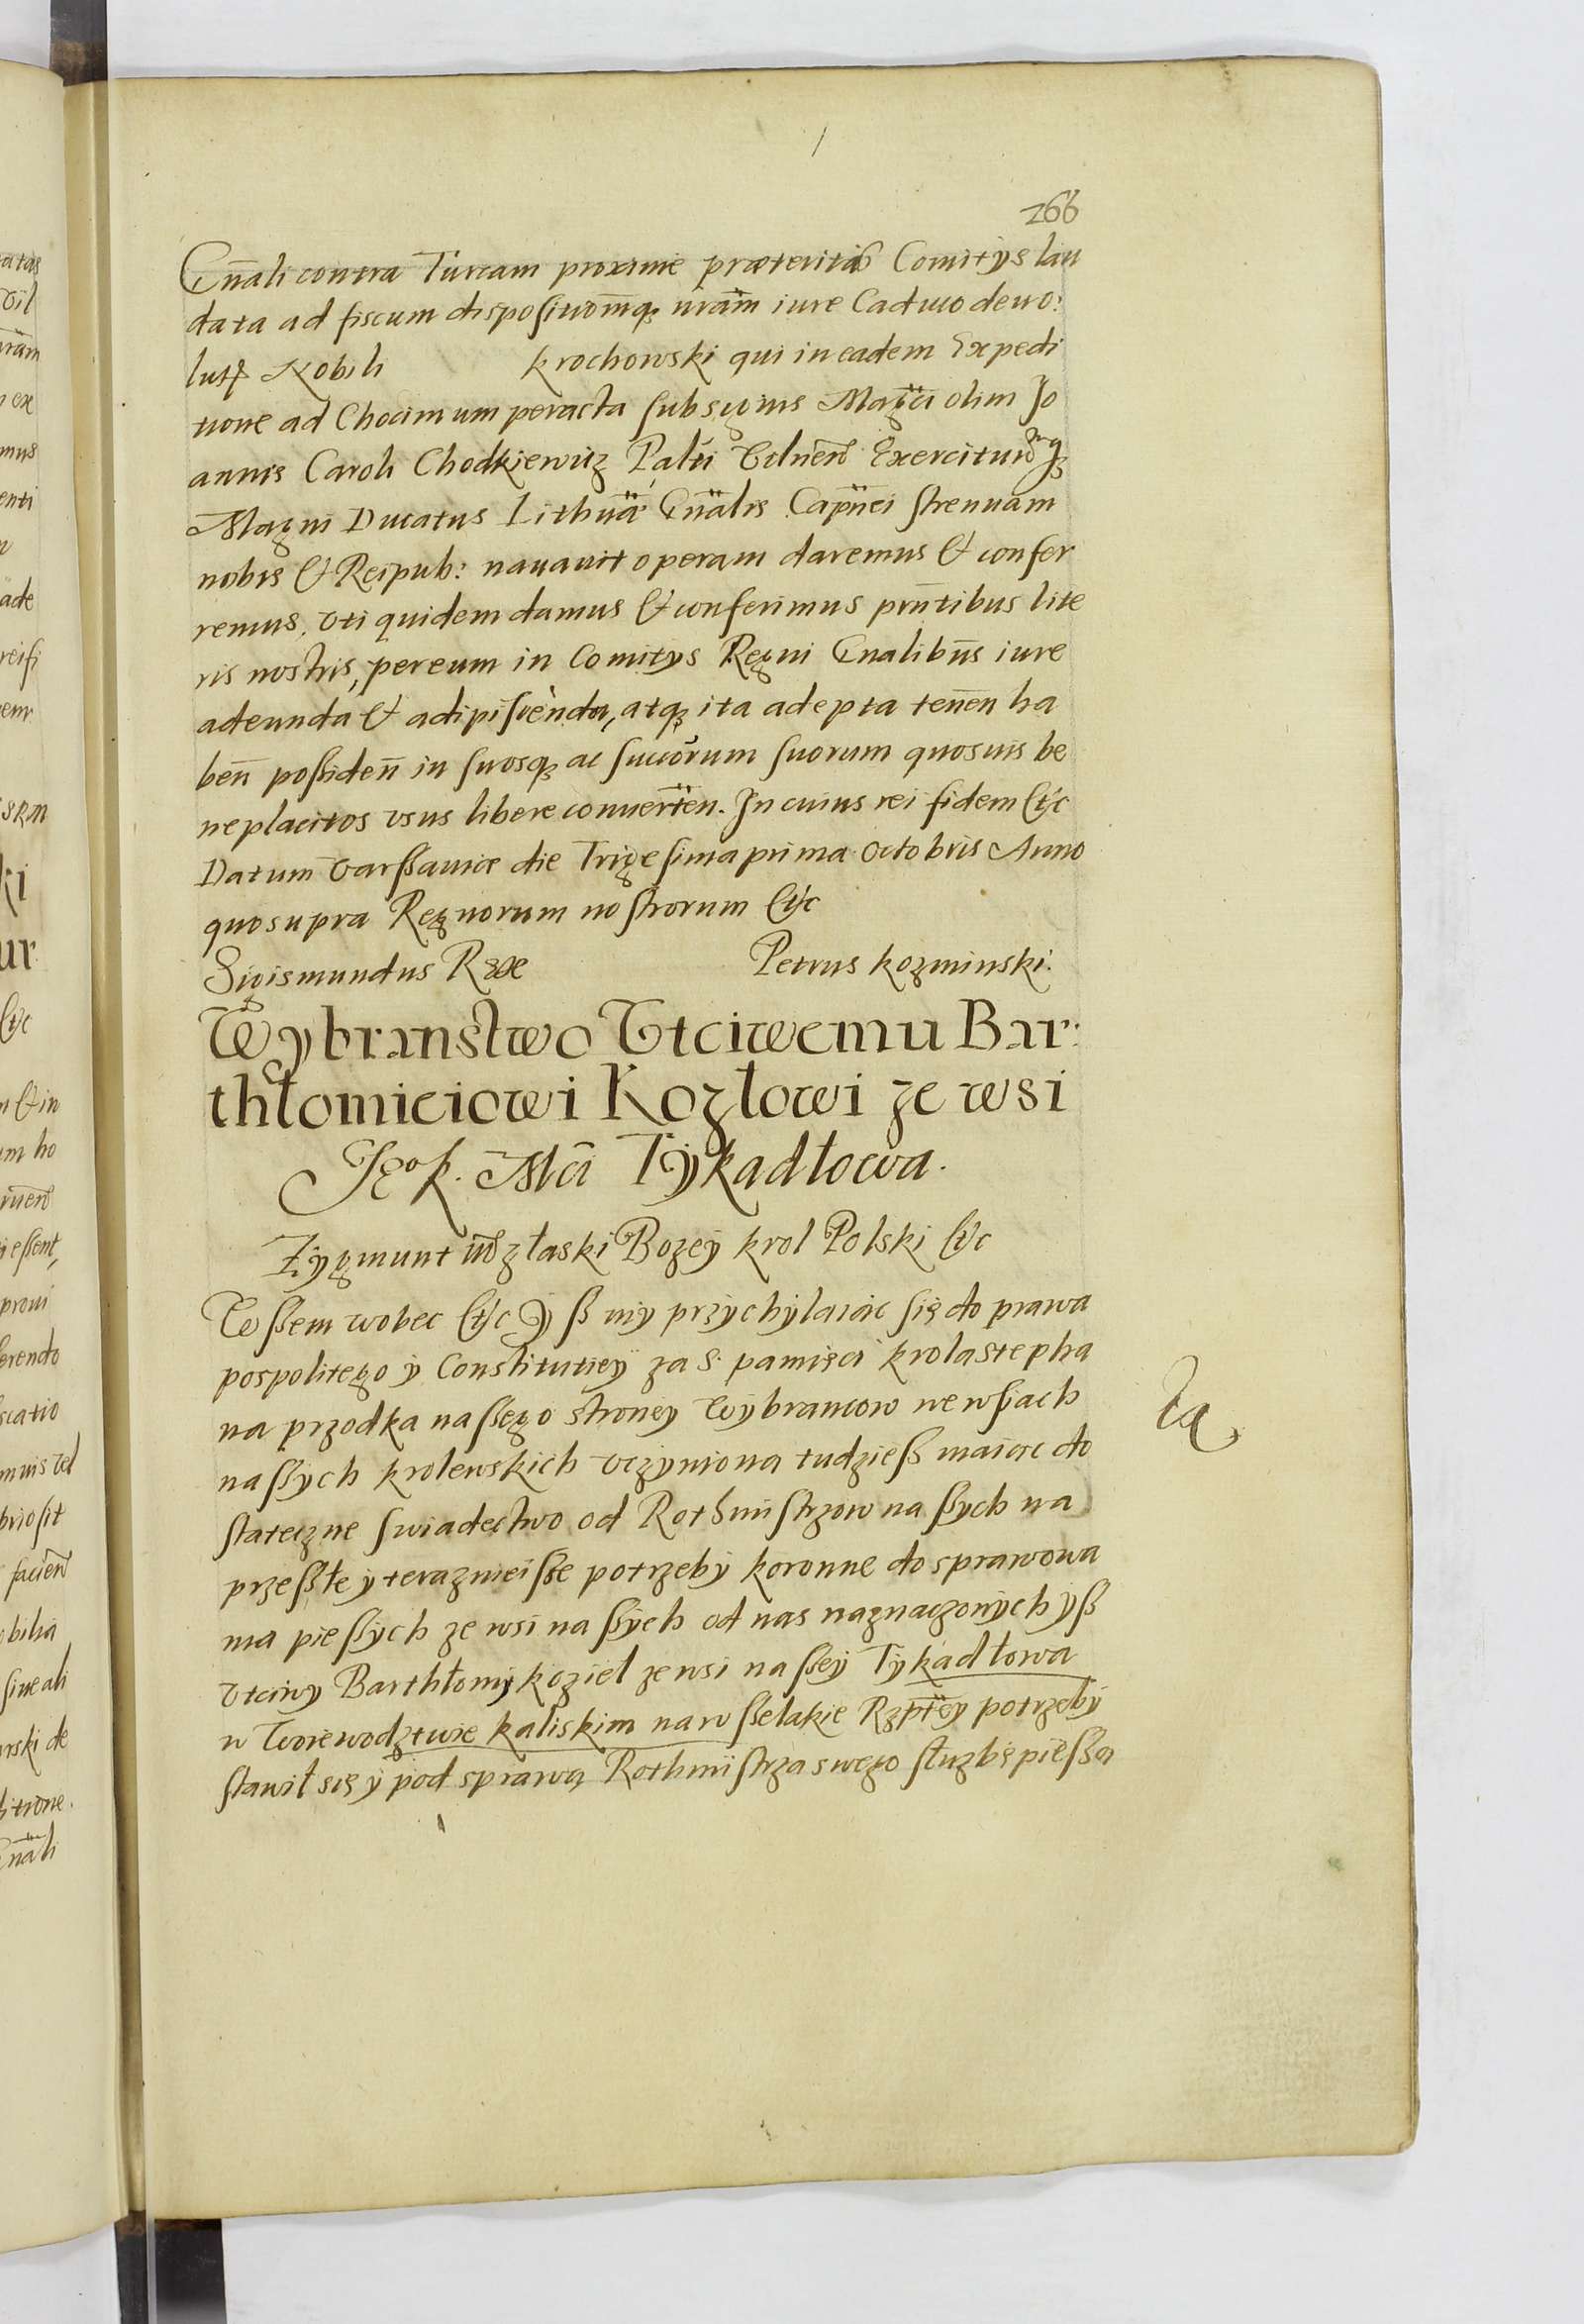 266
Gn̄ali contra Turcam proxime præteritis Comitÿs lau
data ad fiscum dispositionem̄q₃ nr̄am iure Caduco deuo:
lut Nobili Krochowski qui in eadem Expedi
tione ad Chocimum peracta sub signis Mag̈ci olim Jo
annis Caroli Chodkiewicz Palti Vilnen̄ Exercituumq₃
Magni Ducatus Lithuä Gn̈alis Capn̈ei strenuam
nobis & Reipub: nauauit operam daremus & confer
remus, vti quidem damus & conferimus prn̄tibus lite
ris nostris, per eum in Comitÿs Regni Gnalibus̄ iure
adeunda & adipiscenda, atq₃ ita adepta tenen̄ ha
ben̄ possiden̄ in suosq₃ ac succōrum suorum quosuis be
neplacitos vsus libere conuerten̄. In cuius rei fidem &c
Datum Varssauiæ die Trigesima prima Octobris Anno
quo supra Regnorum nostrorum &c
Sigismundus Rex Petrus Kozminski.
Wybranstwo Vtciwemu Bar:
thłomieiowi Kozłowi ze wsi
Jgo k. Mci Tykadłowa.
Zÿgmunt III z łaski Bozeÿ krol Polski &c
Wssem wobec &c Yß mÿ przÿchÿlaiąc się do prawa
pospolitego ÿ Constitutieÿ za S. pamięci krola Stepha
na przodka nassego stroneÿ Wÿbrancow we wsiach
nassÿch krolewskich vczÿniona tudzieß maiąc do
stateczne swiadectwo od Rothmistrzow nassÿch na
przeszłe ÿ terazneisse potrzebÿ koronne do sprawowa
nia piessÿch ze wsi nassÿch od nas naznaczonÿch yß
vtciwy Barthłomiÿ kozieł ze wsi nasseÿ Tÿkadłowa
w Woiewodztwie kaliskim na wsselakie Rzpt̄eÿ potrzebÿ
stawił się ÿ pod sprawą Rothmistrza swego słuzbę piessą